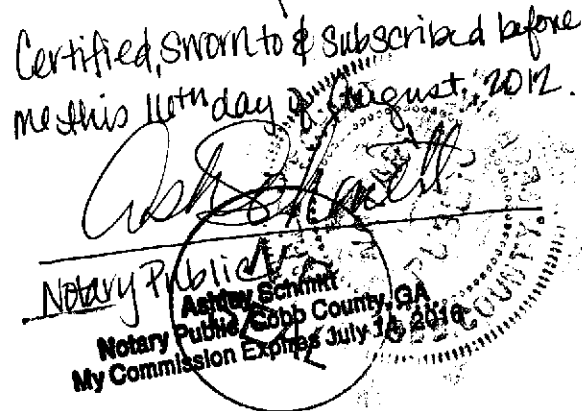 Certified, sworn to & subscribed before
me this 16th day of August, 2012.
Notary Public
Ashley Schmitt
Notary Public, Cobb County, GA
My Commission Expires July
COUNTY